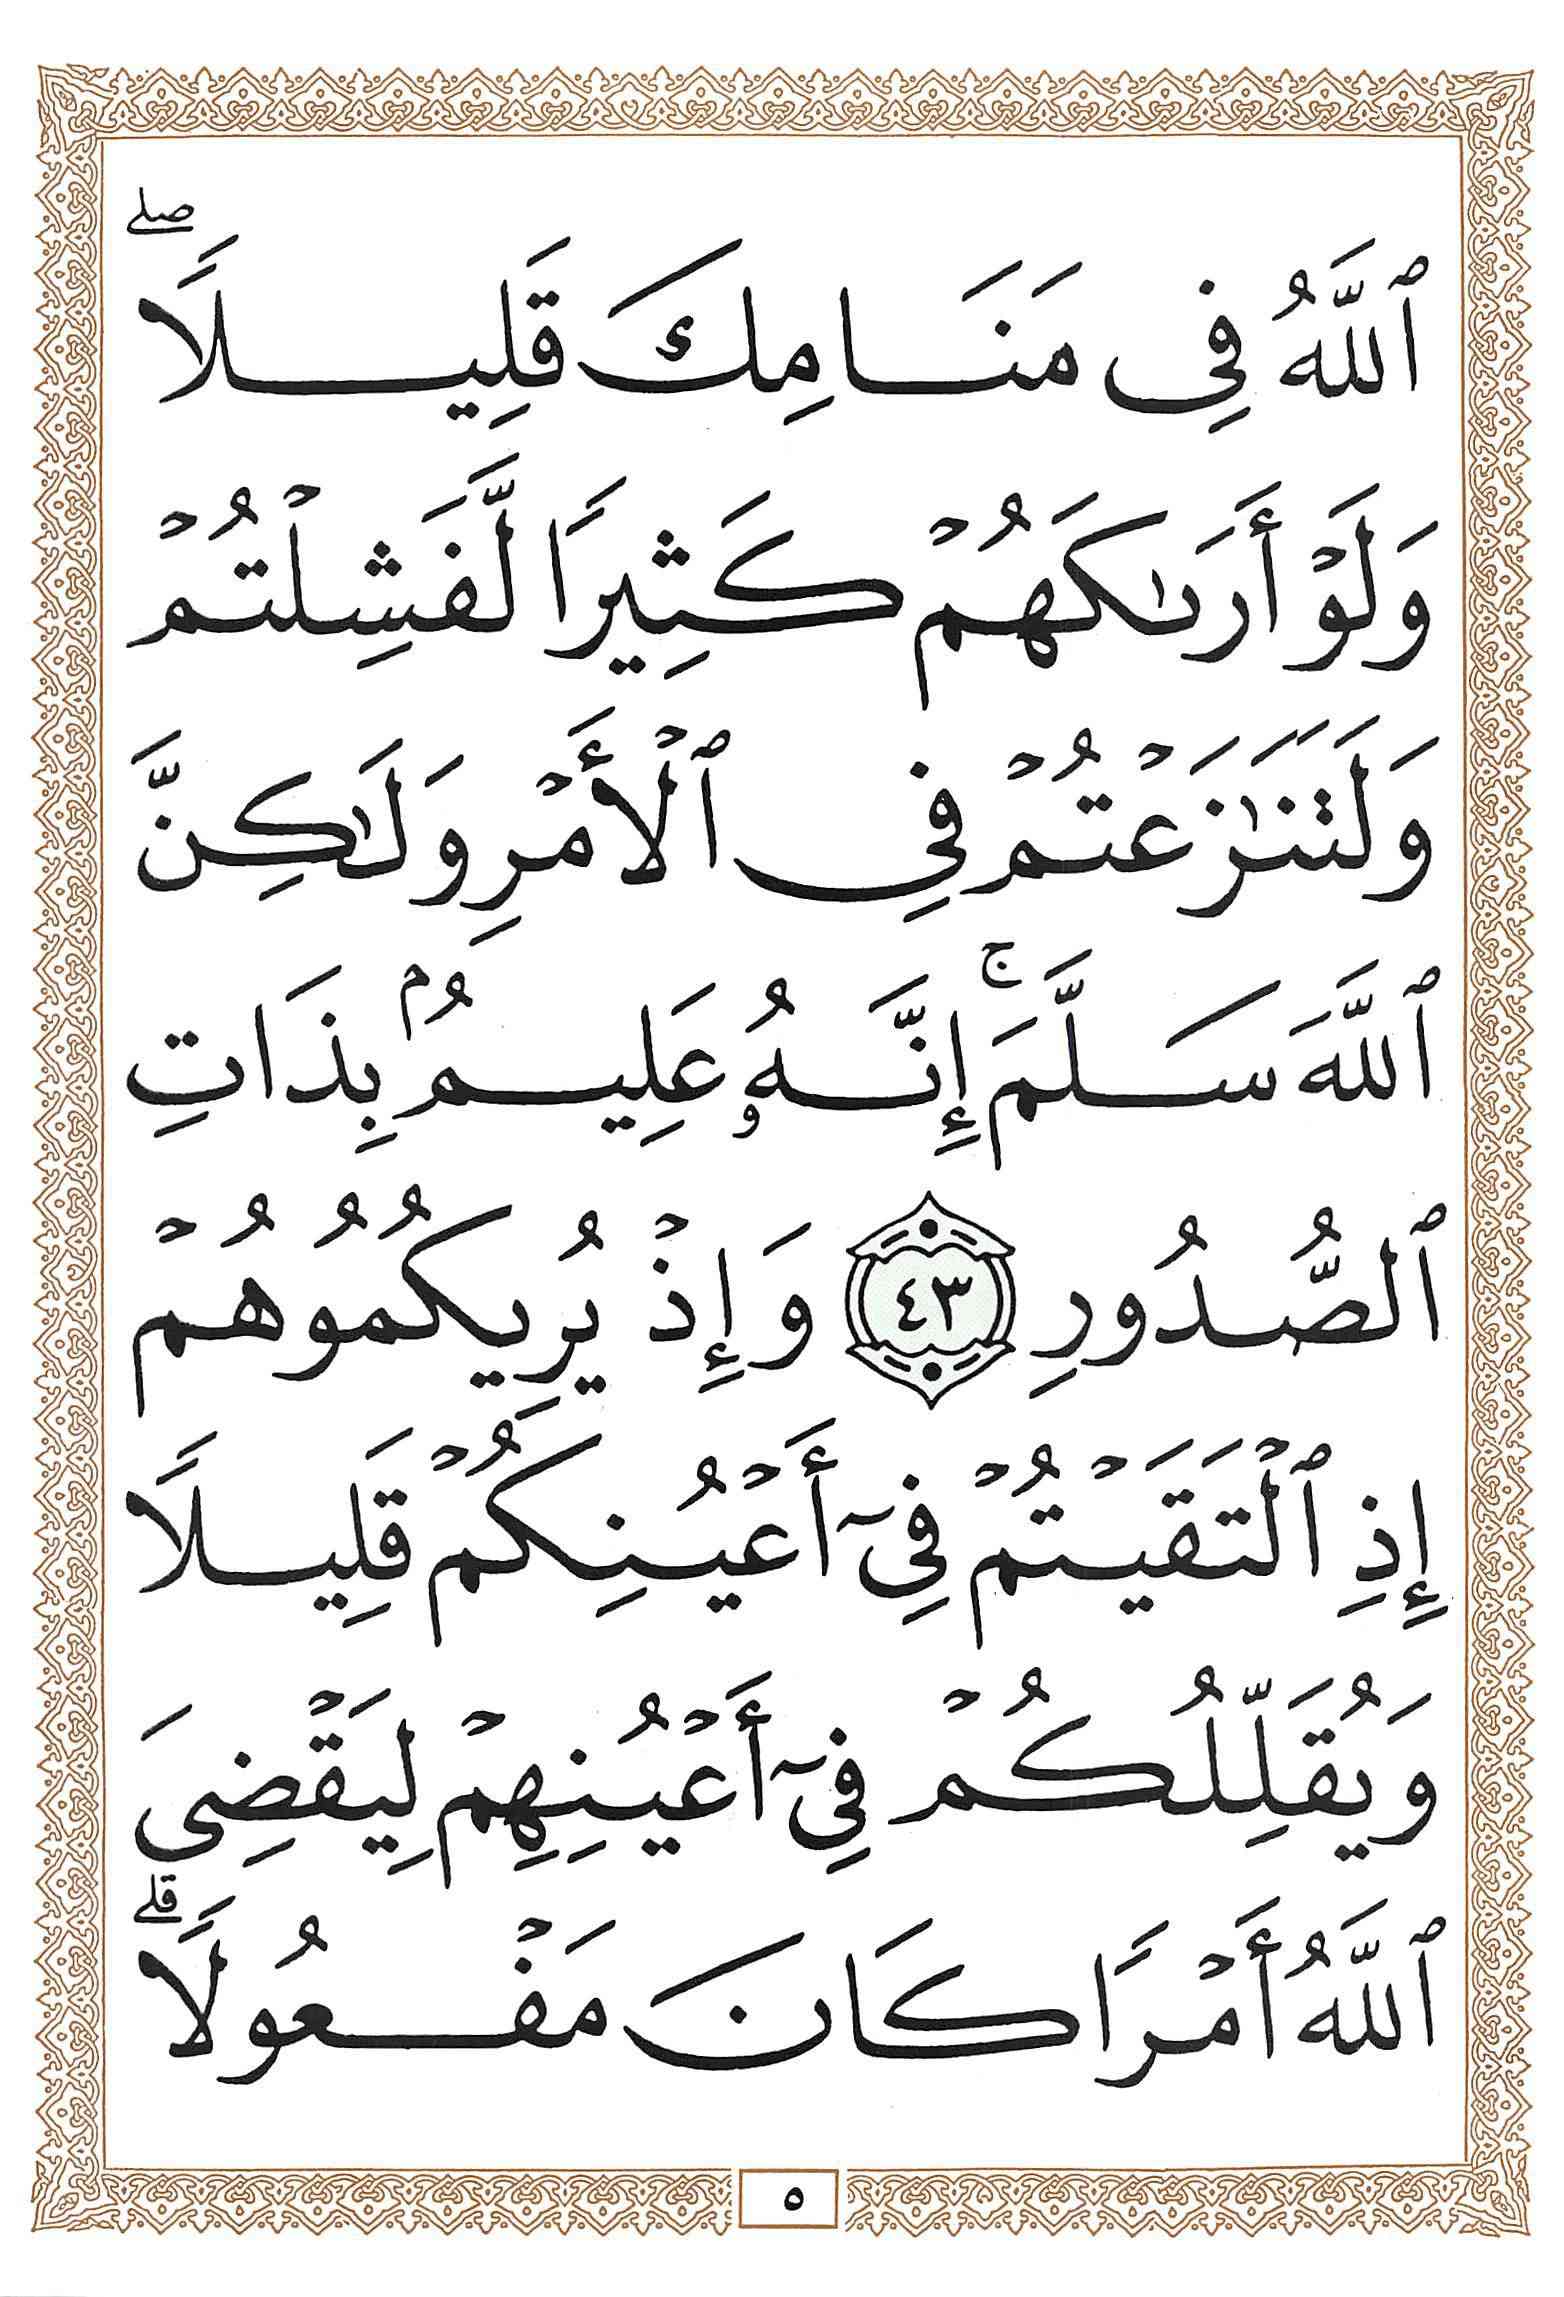 ٱللَّهُ فِى مَنَامِكَ قَلِيلًا ۖ
وَلَوْ أَرَىٰكَهُمْ كَثِيرًا لَّفَشِلْتُمْ
وَلَتَنَـٰزَعْتُمْ فِى ٱلْأَمْرِ وَلَـٰكِنَّ
ٱللَّهَ سَلَّمَ ۚ إِنَّهُۥ عَلِيمٌۢ بِذَاتِ
ٱلصُّدُورِ ٤٣ وَإِذْ يُرِيكُمُوهُمْ
إِذِ ٱلْتَقَيْتُمْ فِىٓ أَعْيُنِكُمْ قَلِيلًا
وَيُقَلِّلُكُمْ فِىٓ أَعْيُنِهِمْ لِيَقْضِىَ
ٱللَّهُ أَمْرًا كَانَ مَفْعُولًا ۗ
٥